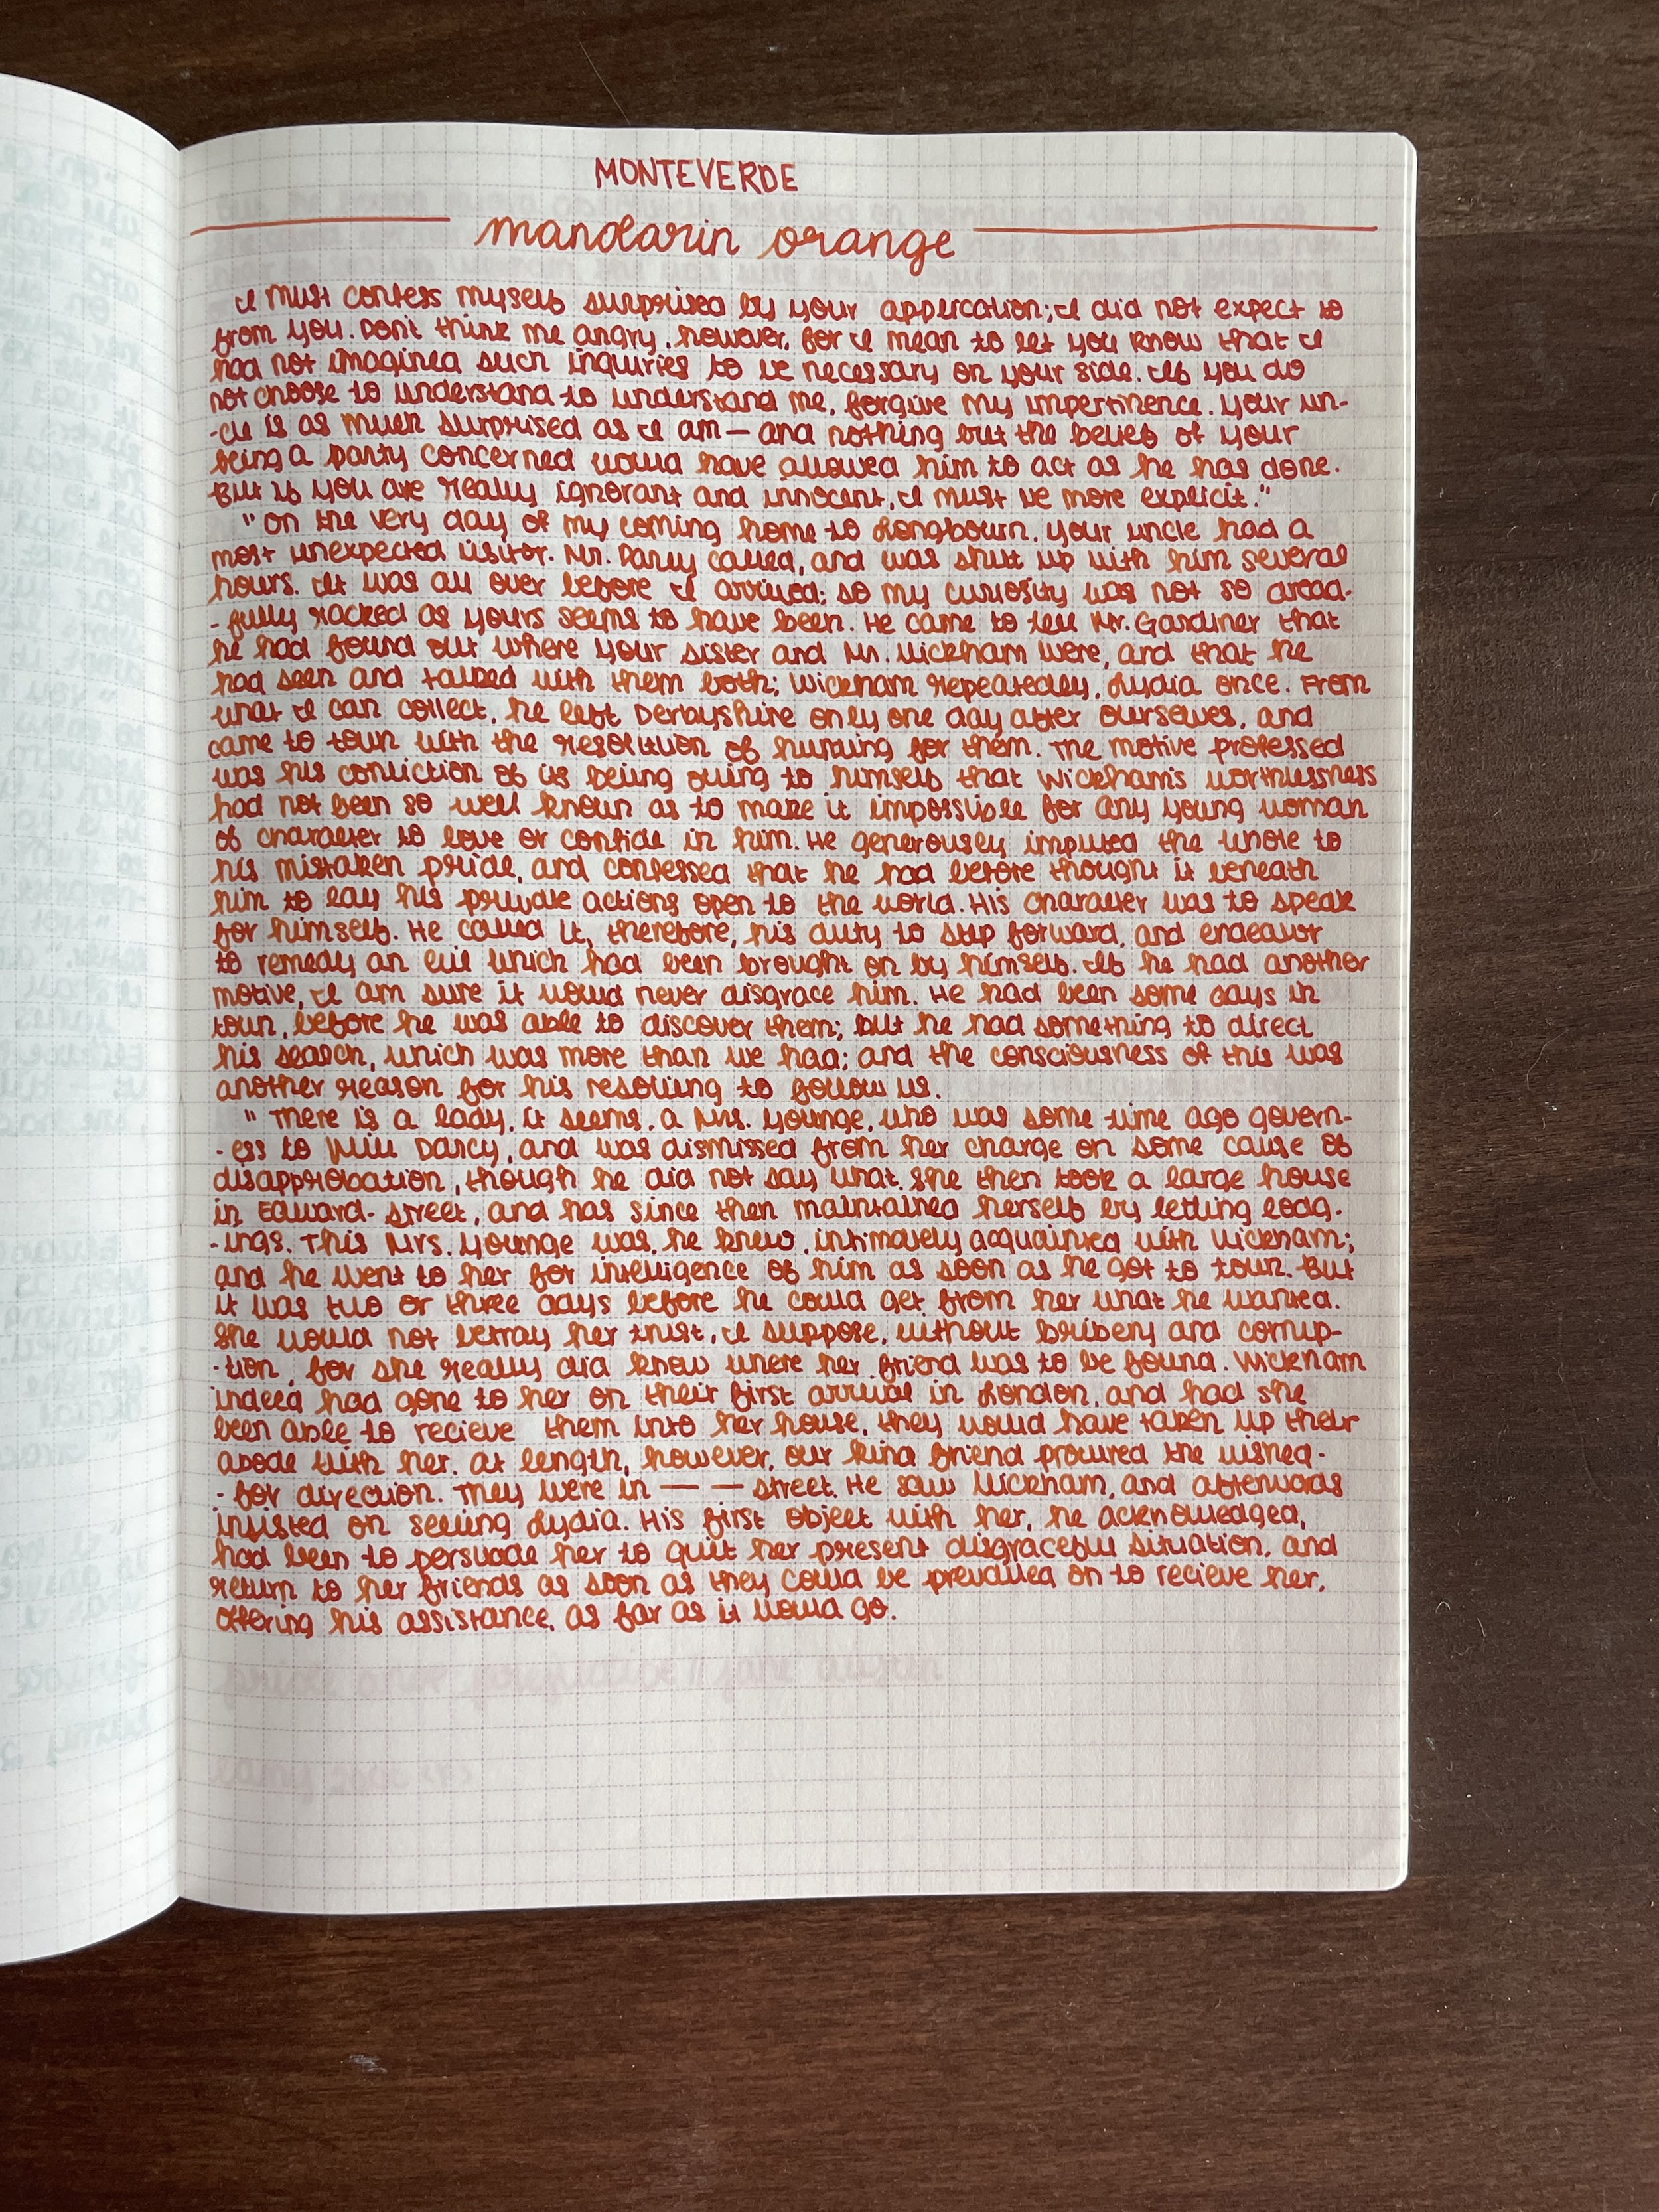 MONTEVERDE
mandarin orange
I must confess myself surprised by your application; I did not expect to
from you. Don't think me angry, however, for I mean to let you know that I
had not imagined such inquiries to be necessary on your side. If you do
not choose to understand to understand me, forgive my impertinence. Your un-
-cle is as much surprised as I am — and nothing but the belief of your
being a party concerned would have allowed him to act as he has done.
But if you are really ignorant and innocent, I must be more explicit."
"On the very day of my coming home to Longbourn, your uncle had a
most unexpected visitor. Mr. Darcy called, and was shut up with him several
hours. It was all over before I arrived; so my curiosity was not so dread-
-fully racked as yours seems to have been. He came to tell Mr. Gardiner that
he had found out where your sister and Mr. Wickham were, and that he
had seen and talked with them both; Wickham repeatedley, Lydia once. From
what I can collect, he left Derbyshire only one day after ourselves, and
came to town with the resolution of hunting for them. The motive professed
was his conviction of its being owing to himself that Wickham's worthlessness
had not been so well known as to make it impossible for any young woman
of character to love or confide in him. He generously imputed the whole to
his mistaken pride, and confessed that he had before thought it beneath
him to lay his private actions open to the world. His character was to speak
for himself. He called it, therefore, his duty to step forward, and endeavor
to remedy an evil which had been brought on by himself. If he had another
motive, I am sure it would never disgrace him. He had been some days in
town, before he was able to discover them; but he had something to direct
his search, which was more than we had; and the consciousness of this was
another reason for his resolving to follow us.
"There is a lady, it seems, a Mrs. Younge, who was some time ago govern-
-ess to Miss Darcy, and was dismissed from her charge on some cause of
disapprobation, though he did not say what. She then took a large house
in Edward-street, and has since then maintained herself by letting lodg-
-ings. This Mrs. Younge was, he knew, intimately acquainted with Wickham;
and he went to her for intelligence of him as soon as he got to town. But
it was two or three days before he could get from her what he wanted.
She would not betray her trust, I suppose, without bribery and corrup-
-tion, for she really did know where her friend was to be found. Wickham
indeed had gone to her on their first arrival in London, and had she
been able to recieve them into her house, they would have taken up their
abode with her. At length, however, our kind friend procured the wished-
-for direction. They were in — — street. He saw Wickham, and afterwards
insisted on seeing Lydia. His first object with her, he acknowledged,
had been to persuade her to quit her present disgraceful situation, and
return to her friends as soon as they could be prevailed on to recieve her,
offering his assistance, as far as it would go.